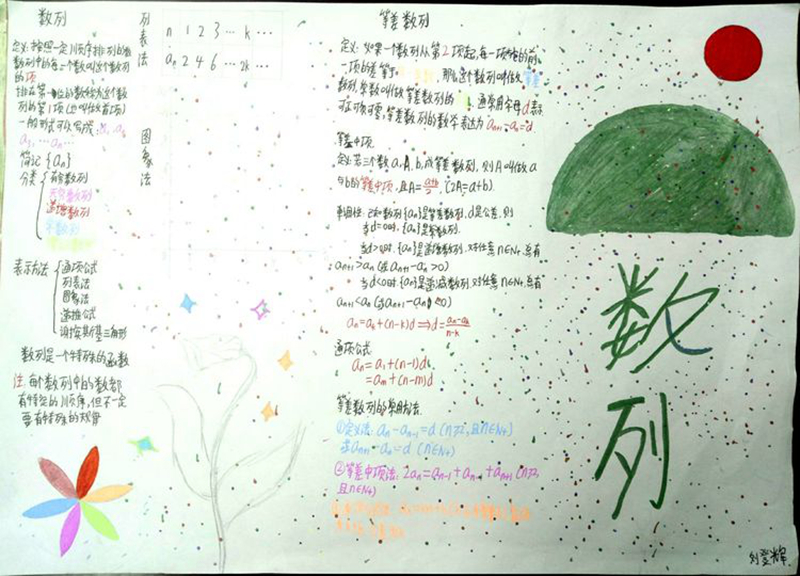 数列
定义:按照一定顺序排列的数
数列中的每一个数叫这个数列
的项
排在第一位的数称为这个数
列的第1项(也叫做首项)
一般形式可以写成:a₁,a₂
a₃,…aₙ…
简记{aₙ}
分类
有穷数列
无穷数列
递增数列
常数列
表示方法
通项公式
列表法
图象法
递推公式
谢宾斯基三角形
数列是一个特殊的函数
注:每个数列中的数都
有特定的顺序,但不一定
要有特殊的规律
列表法
n 1 2 3 … k …
aₙ 2 4 6 … 2k …
图象法
等差数列
定义:如果一个数列从第2项起,每一项与它的前
一项的差等于 那么这个数列叫做等差
数列,常数叫做等差数列的 通常用字母d表示
可正可零,等差数列的数学表达为aₙ₊₁-aₙ=d
等差中项
定义:若三个数a,A,b,成等差数列,则A叫做a
与b的等差中项,且A=(a+b)/2,(2A=a+b)
单调性:已知数列{aₙ}是等差数列,d是公差,则
当d=0时,{aₙ}是常数列
当d>0时,{aₙ}是递增数列,对任意n∈N₊,总有
aₙ₊₁>aₙ(或aₙ₊₁-aₙ>0)
当d<0时{aₙ}是递减数列,对任意n∈N₊,总有
aₙ₊₁<aₙ(或aₙ₊₁-aₙ<0)
aₙ=aₖ+(n-k)d⇒d=(aₙ-aₖ)/(n-k)
通项公式
aₙ=a₁+(n-1)d
=aₘ+(n-m)d
等差数列的常用方法.
①定义法:aₙ-aₙ₋₁=d(n≥2,且n∈N₊)
或aₙ₊₁-aₙ=d(n∈N₊)
②等差中项法:2aₙ=aₙ₋₁+aₙ₊₁(n≥2,
且n∈N₊)
数列
刘登辉